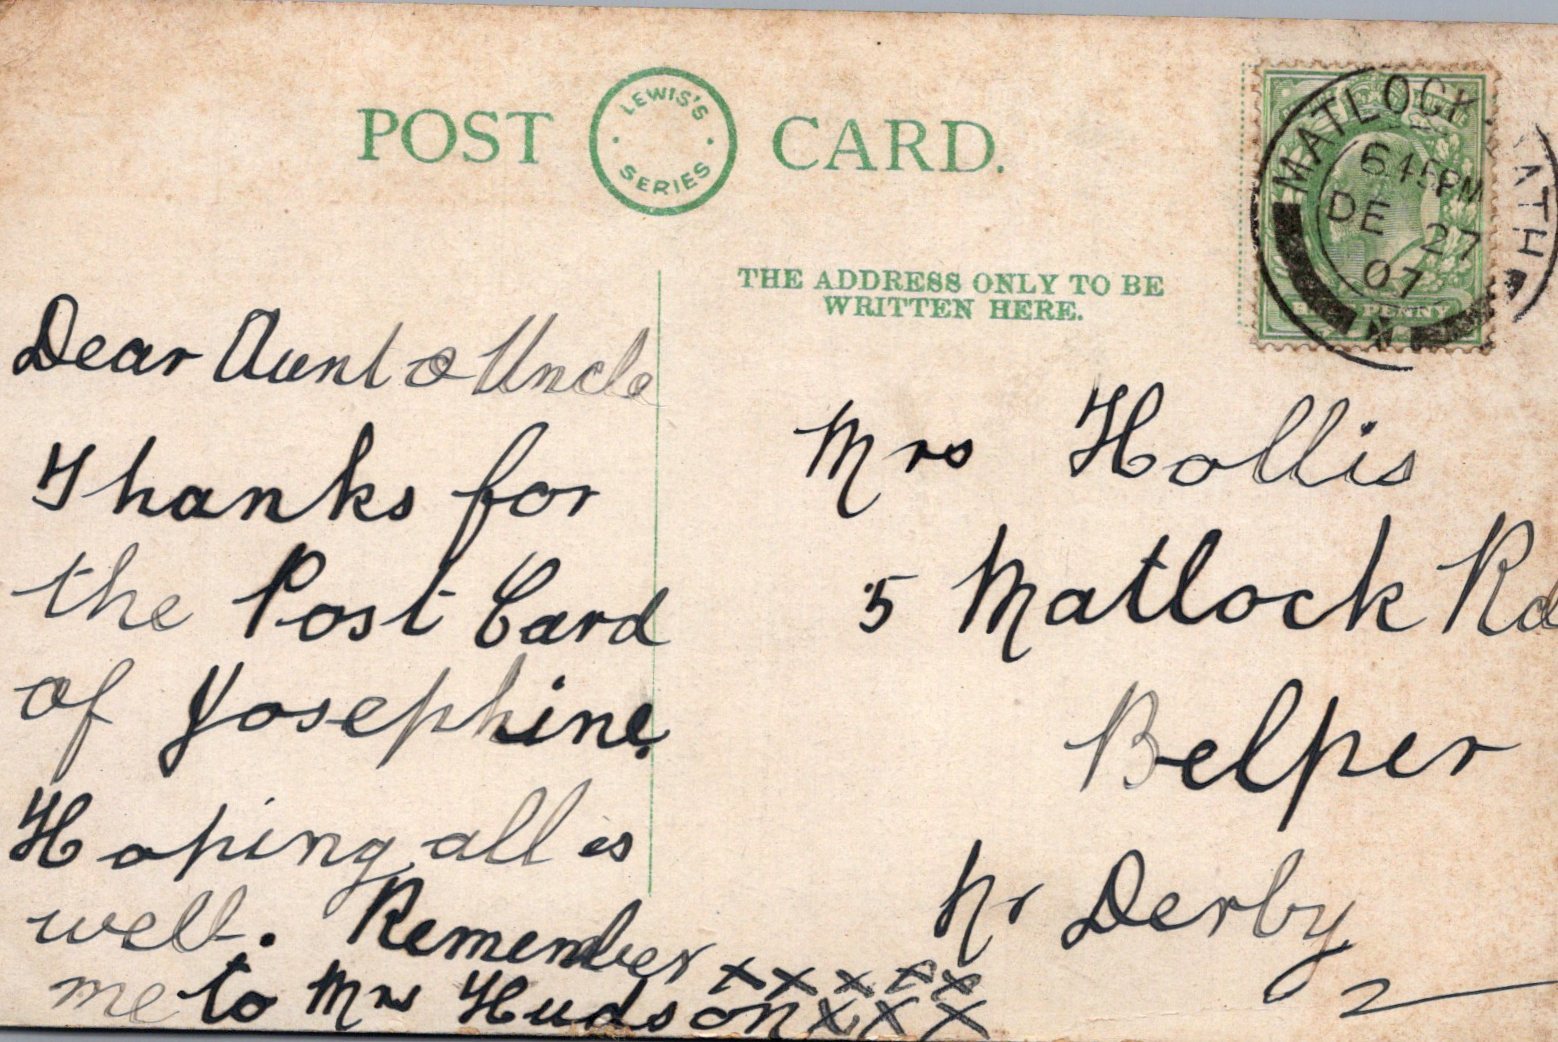 POST CARD.
LEWIS'S SERIES
THE ADDRESS ONLY TO BE
WRITTEN HERE.
MATLOCK BATH
6.45PM
DE 27
07
PENNY
Dear Aunt & Uncle
Thanks for
the Post Card
of Josephine.
Hoping all is
well. Remember x x x x x
me to Mrs Hudson x x x
Mrs Hollis
5 Matlock Rd
Belper
Nr Derby